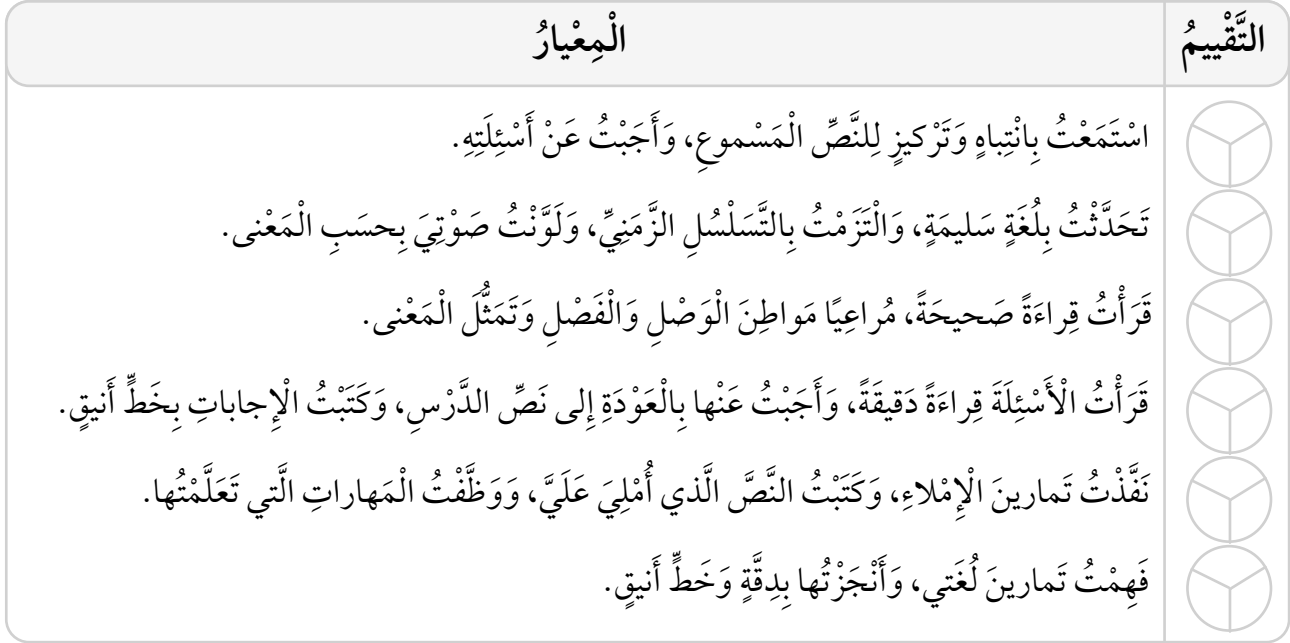 التَّقْييمُ الْمِعْيارُ
اسْتَمَعْتُ بِانْتِباهٍ وَتَرْكيزٍ لِلنَّصِّ الْمَسْموعِ، وَأَجَبْتُ عَنْ أَسْئِلَتِهِ.
تَحَدَّثْتُ بِلُغَةٍ سَليمَةٍ، وَالْتَزَمْتُ بِالتَّسَلْسُلِ الزَّمَنِيِّ، وَلَوَّنْتُ صَوْتِيَ بِحسَبِ الْمَعْنى.
قَرَأْتُ قِراءَةً صَحيحَةً، مُراعِيًا مَواطِنَ الْوَصْلِ وَالْفَصْلِ وَتَمَثُّلَ الْمَعْنى.
قَرَأْتُ الْأَسْئِلَةَ قِراءَةً دَقيقَةً، وَأَجَبْتُ عَنْها بِالْعَوْدَةِ إِلى نَصِّ الدَّرْسِ، وَكَتَبْتُ الْإِجاباتِ بِخَطٍّ أَنيقٍ.
نَفَّذْتُ تَمارينَ الْإِمْلاءِ، وَكَتَبْتُ النَّصَّ الَّذي أُمْلِيَ عَلَيَّ، وَوَظَّفْتُ الْمَهاراتِ الَّتي تَعَلَّمْتُها.
فَهِمْتُ تَمارينَ لُغَتي، وَأَنْجَزْتُها بِدِقَّةٍ وَخَطٍّ أَنيقٍ.